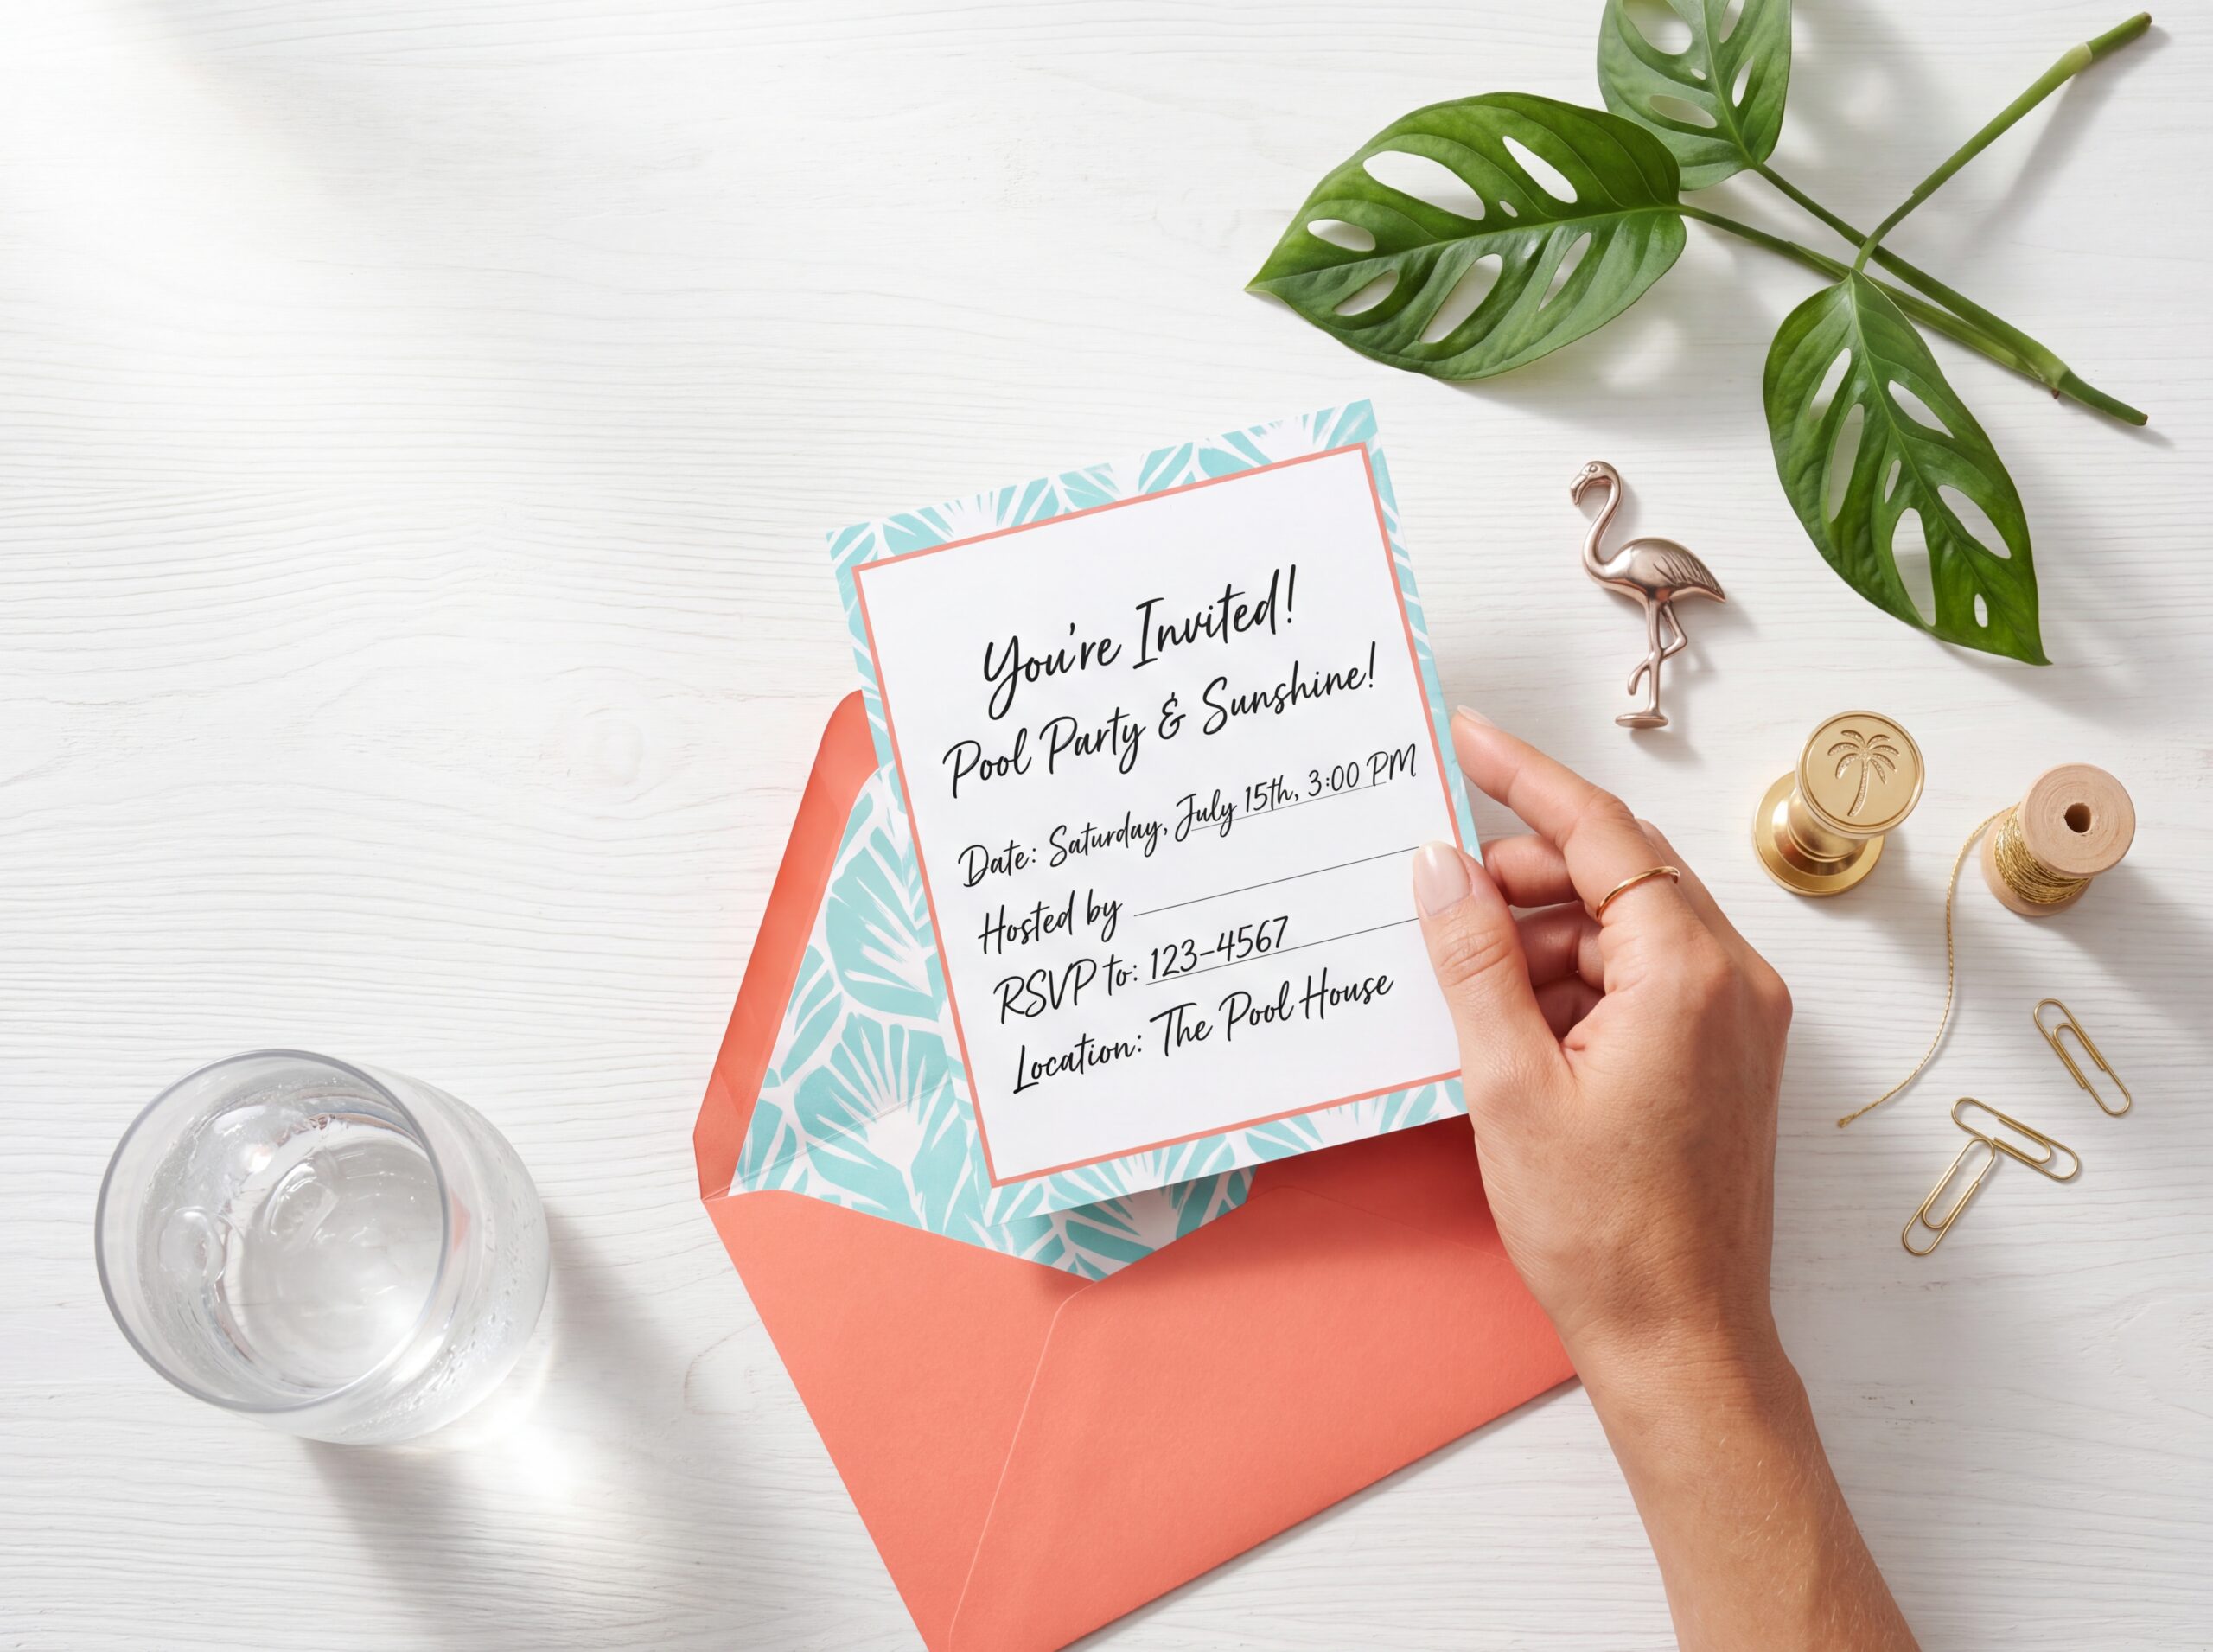 You're Invited!
Pool Party & Sunshine!
Date: Saturday, July 15th, 3:00 PM
Hosted by
RSVP to: 123-4567
Location: The Pool House